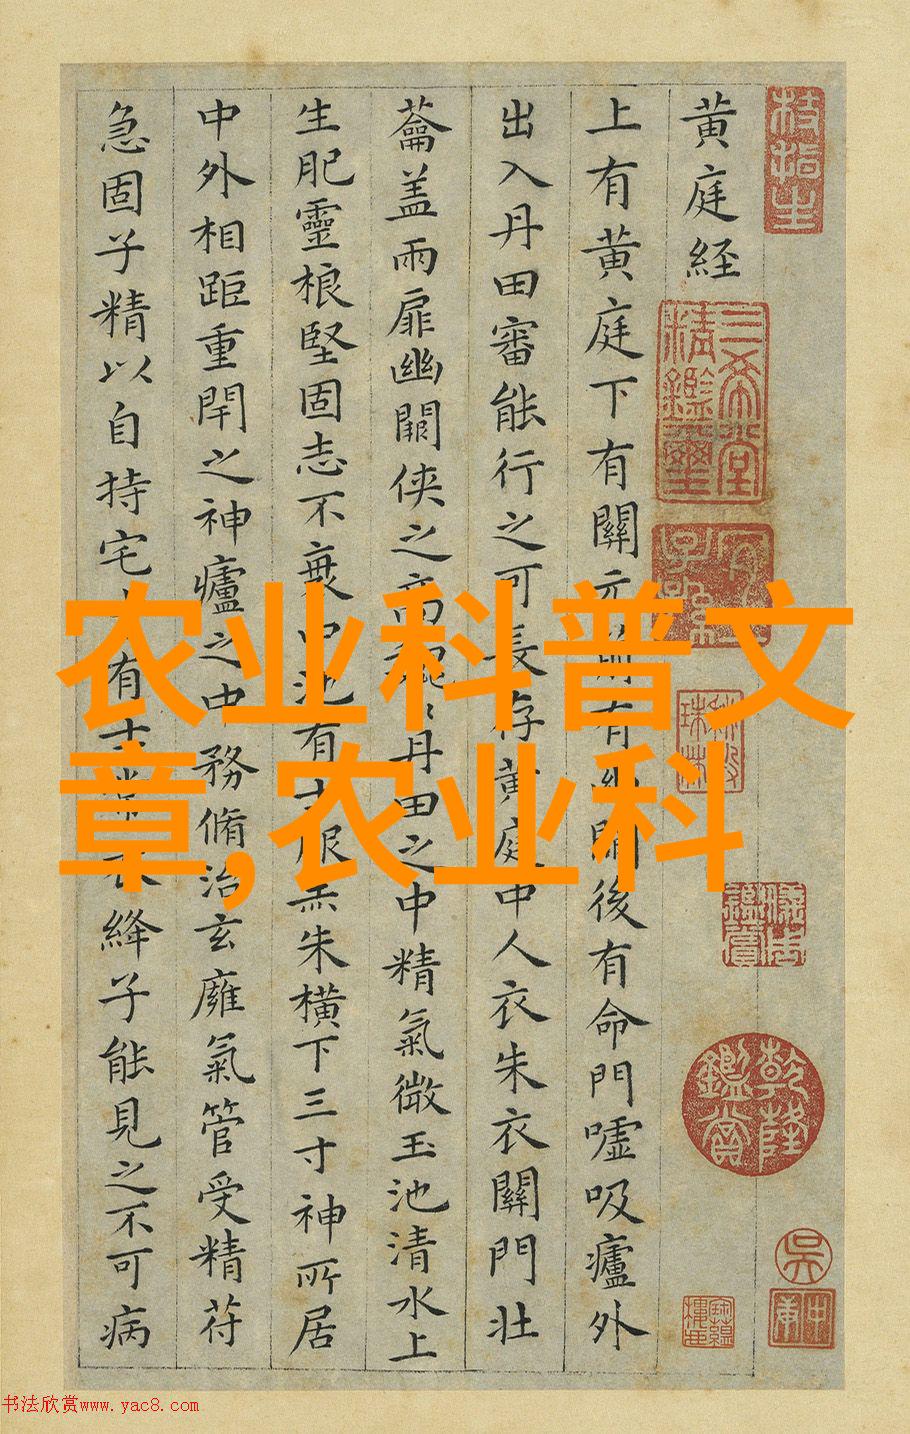 黃庭経
上有黃庭下有關元前有幽闕後有命門噓吸廬外
出入丹田審能行之可長存黃庭中人衣朱衣關門壯
籥盖兩扉幽闕俠之高巍丹田之中精氣微玉池清水上
生肥靈根堅固志不衰中池有士服赤朱橫下三寸神所居
中外相距重閇之神廬之中務脩治玄廱氣管受精苻
急固子精以自持宅中有士常衣絳子能見之不可病
三希堂精鑑璽
乾隆鑑賞
吳
农业科普文
章,农业科
书法欣赏www.yac8.com